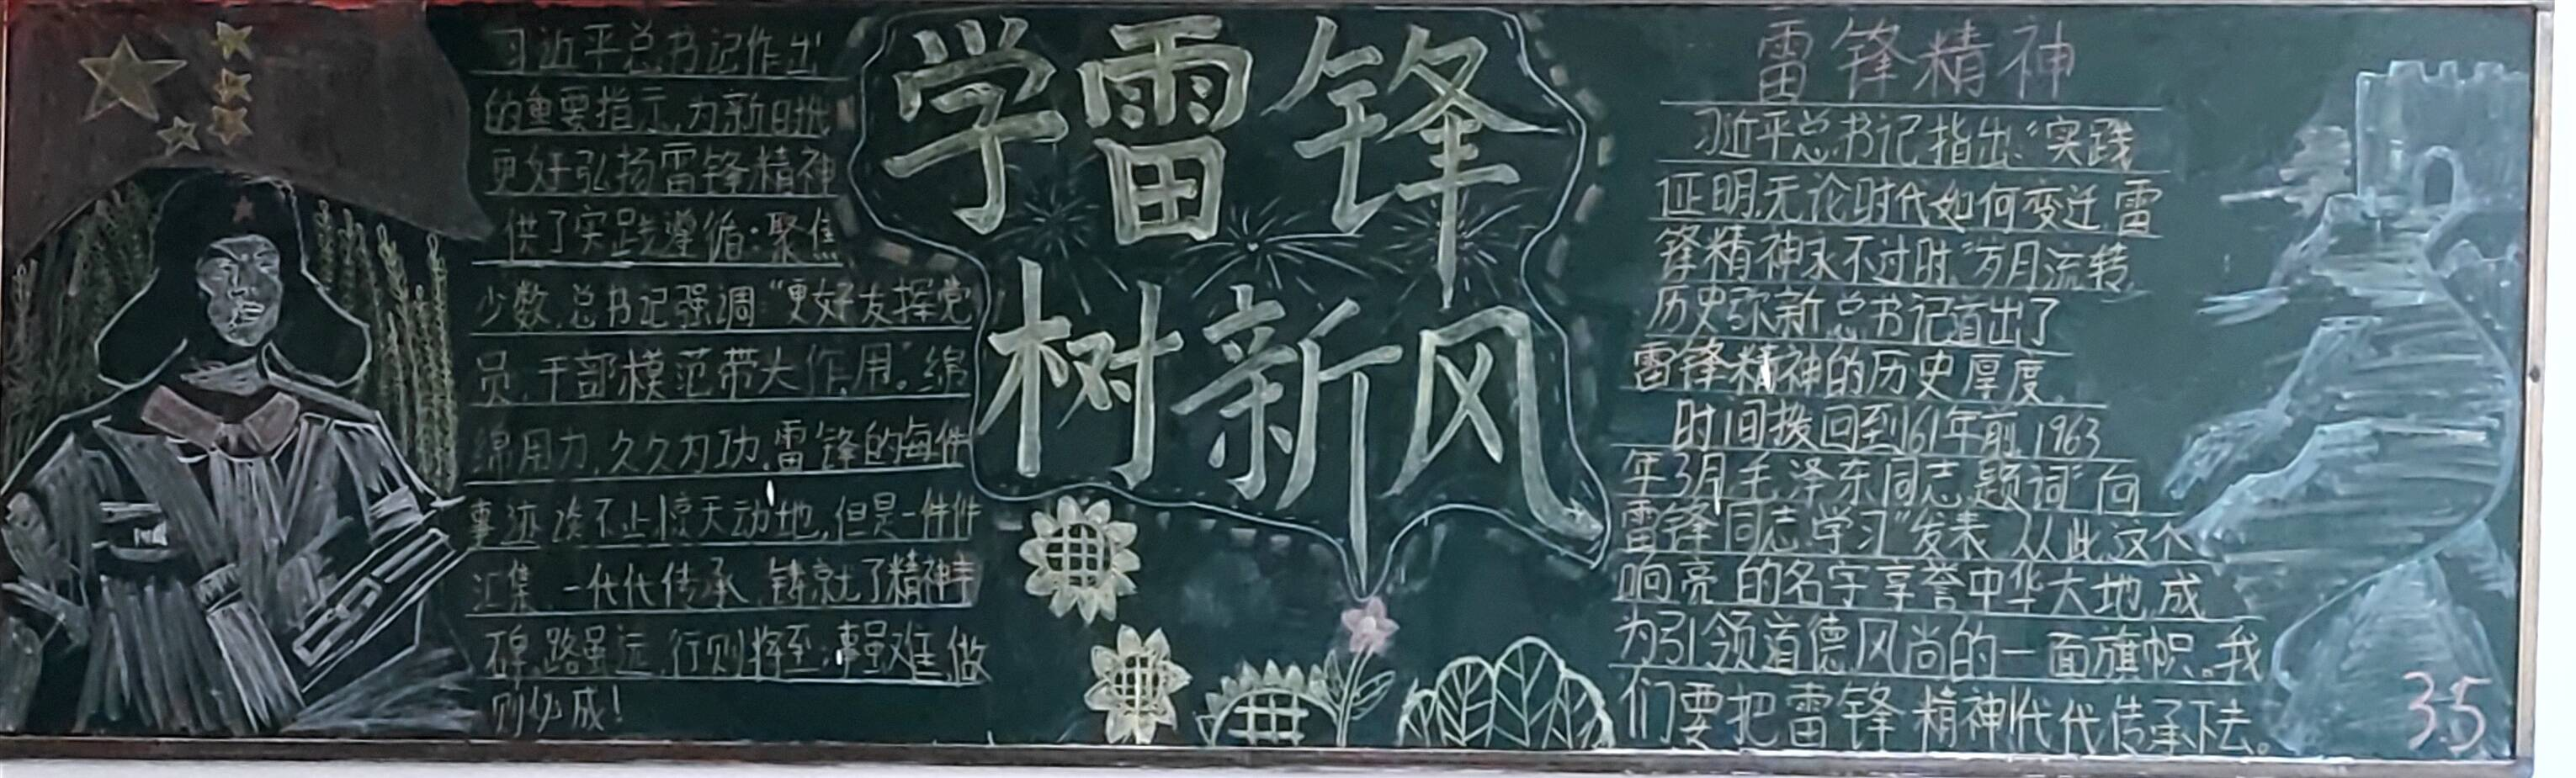 习近平总书记作出
的重要指示,为新时代
更好弘扬雷锋精神
供了实践遵循:聚焦
少数,总书记强调“更好发挥党
员,干部模范带大作用”。绵
绵用力,久久为功,雷锋的每件
事迹谈不上惊天动地,但是一件件
汇集,一代代传承,铸就了精神丰
碑,路虽远,行则将至;事虽难,做
则必成!
学雷锋
树新风
雷锋精神
习近平总书记指出:“实践
证明,无论时代如何变迁,雷
锋精神永不过时.”岁月流转,
历史弥新,总书记道出了
雷锋精神的历史厚度。
时间拨回到61年前,1963
年3月毛泽东同志题词“向
雷锋同志学习”发表,从此,这个
响亮的名字享誉中华大地,成
为引领道德风尚的一面旗帜。我
们要把雷锋精神代代传承下去。
3.5